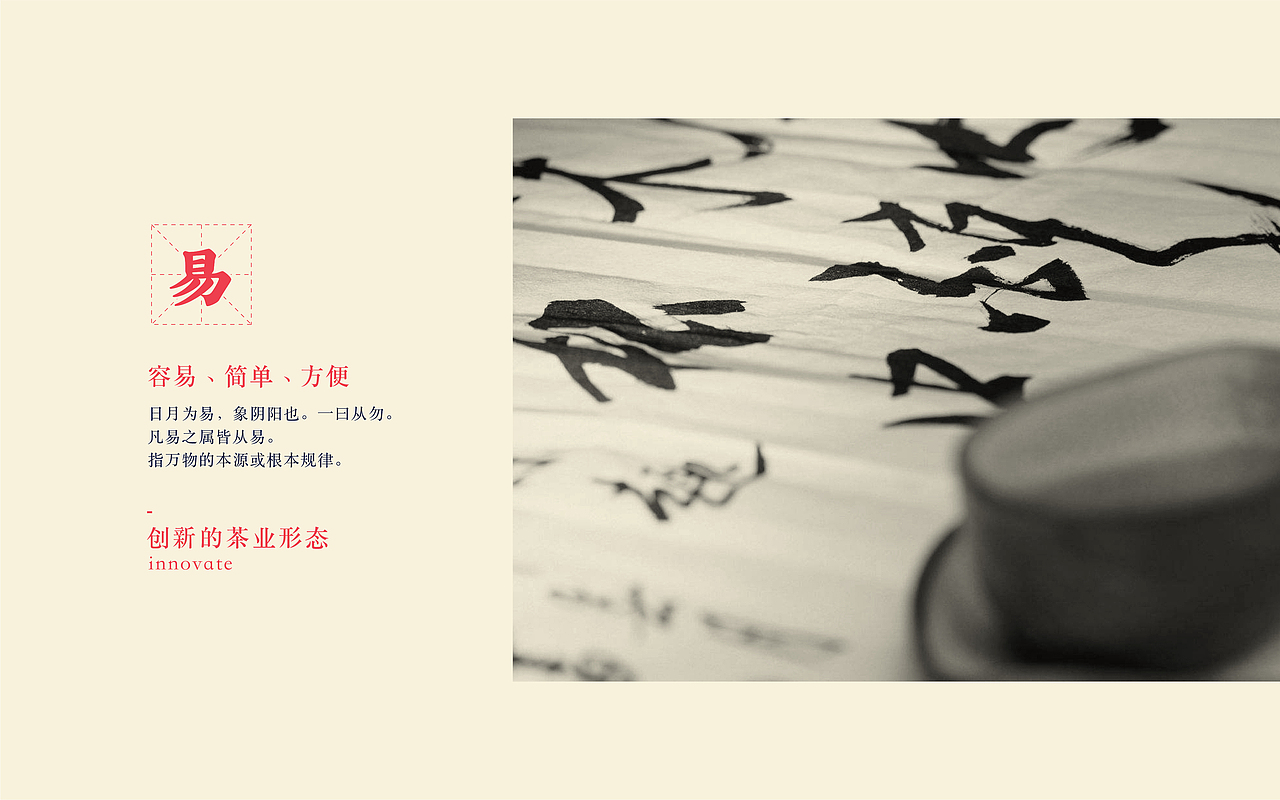 易
容易、简单、方便
日月为易，象阴阳也。一曰从勿。
凡易之属皆从易。
指万物的本源或根本规律。
-
创新的茶业形态
innovate